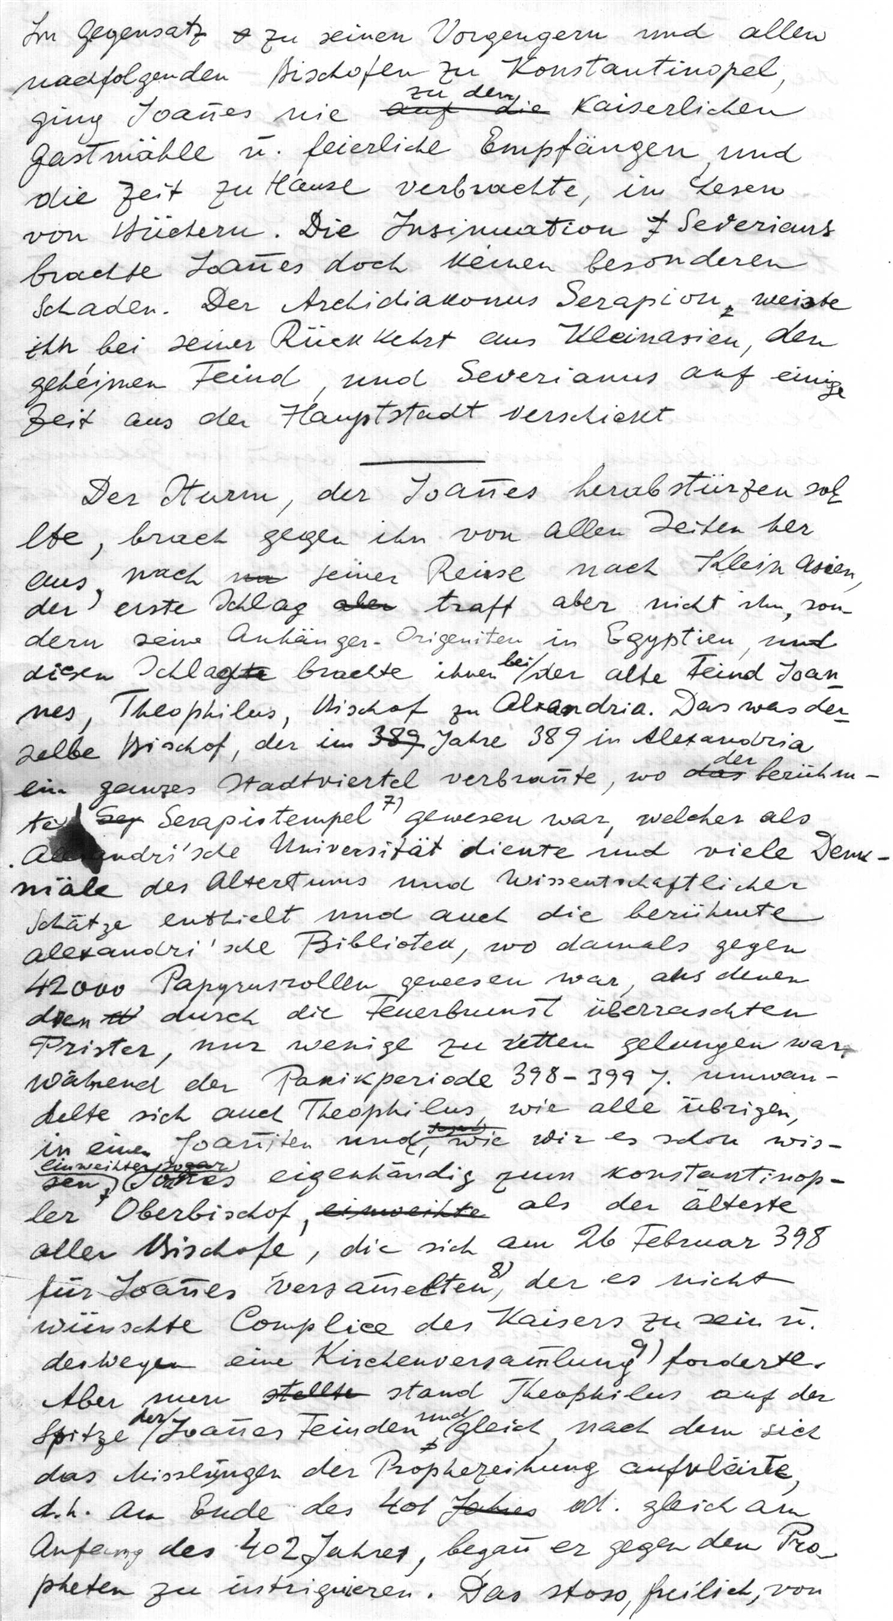 Im Gegensatz zu seinen Vorgengern und allen
nachfolgenden Bischofen zu Konstantinopel,
ging Joan̄es nie auf die zu den Kaiserlichen
Gastmähle ū. feierliche Empfängen, und
die Zeit zu Hause verbrachte, im Lesen
von Büchern. Die Insinuation Severians
brachte Joan̄es doch keinen besonderen
Schaden. Der Archidiakonus Serapion, weiste
ihn bei seiner Rückkehrt aus Kleinasien, den
geheimen Feind, und Severianus auf einige
Zeit aus der Hauptstadt verschickt
Der Sturm, der Joan̄es herabstürzen sol
lte, brach gegen ihn von allen Seiten her
aus, nach na seiner Reise nach Klein Asien,
der erste Schlag aber traff aber nicht ihn, son-
dern seine Anhänger - Origeniten in Egyptien, und
diesen Schlag brachte ihnen bei/der alte Feind Joan
nes, Theophilus, Bischof zu Alexandria. Das was der-
selbe Bischof, der im 389 Jahre 389 in Alexandria
ein ganzes Stadtviertel verbran̄te, wo das der berühm-
te Ser Serapistempel 7) gewesen war, welcher als
Alexandri'sche Universität diente und viele Denk-
mäle des Altertums und Wissentschaftlicher
Schätze enthielt und auch die berühmte
alexandri'sche Bibliotek, wo damals gegen
42000 Papyrusrollen gewesen war, aus denen
den durch die Feuerbrunst überraschten
Prister, nur wenige zu retten gelungen war,
während der Panikperiode 398-399 J. umwan-
delte sich auch Theophilus, wie alle übrigen,
in einen Joan̄iten und, wie wir es schon wis-
sen, einweihter sogar Joan̄es eigenhändig zum konstantinop-
ler Oberbischof, einweihte als der älteste
aller Bischofe, die sich am 26 Februar 398
für Joan̄es versam̄elten 8), der es nicht
wünschte Complice des Kaisers zu sein ū.
deswegen eine Kirchenversam̄lung 9) forderte.
Aber nun stellte stand Theophilus auf der
Spitze der/Joan̄es Feinden und/gleich, nach dem sich
das Misslungen der Prophezeihung aufklärte,
d.h. am Ende des 401 Jahres od. gleich am
Anfang des 402 Jahres, began̄ er gegen den Pro-
pheten zu intriguieren. Das stoss, freilich, von